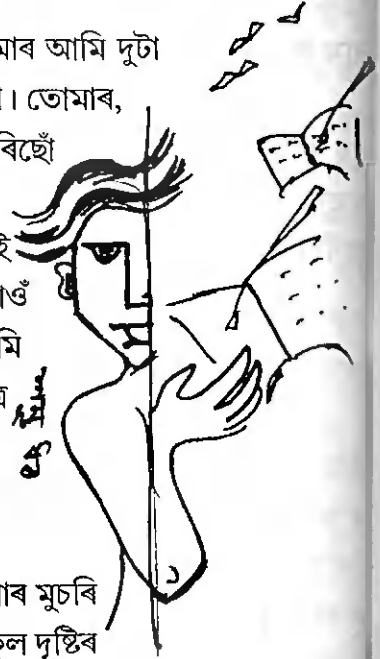 মাৰ আমি দুটা
। তোমাৰ,
ৰিছোঁ
ই
াওঁ
মি
াৰ মুচৰি
দৃষ্টিৰ